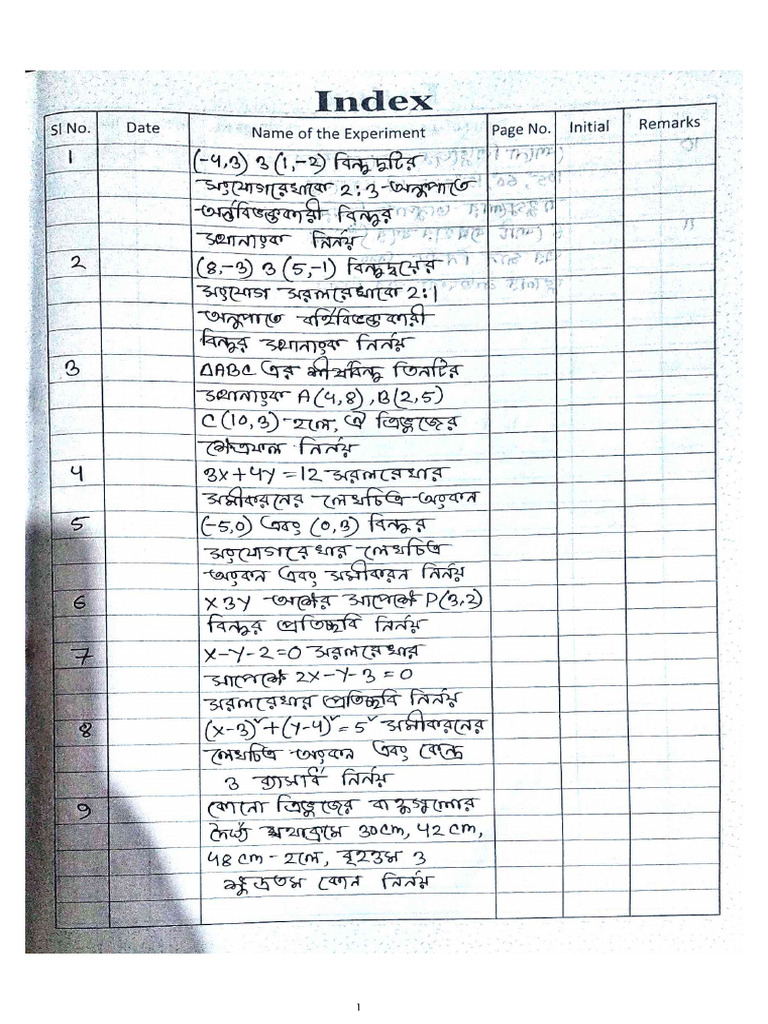 Index
Sl No. Date Name of the Experiment Page No. Initial Remarks
1 (-4,3) ও (1,-2) বিন্দু দুটির
সংযোগরেখাকে 2:3 অনুপাতে
অর্ন্তবিভক্তকারী বিন্দুর
স্থানাংক নির্নয়
2 (8,-3) ও (5,-1) বিন্দুদ্বয়ের
সংযোগ সরলরেখাকে 2:1
অনুপাতে বর্হিবিভক্তকারী
বিন্দুর স্থানাংক নির্নয়
3 ΔABC এর শীর্ষবিন্দু তিনটির
স্থানাংক A(4,8), B(2,5)
C(10,3) হলে, ঐ ত্রিভুজের
ক্ষেত্রফল নির্নয়
4 3x+4y=12 সরলরেখার
সমীকরনের লেখচিত্র অংকন
5 (-5,0) এবং (0,3) বিন্দুর
সংযোগরেখার লেখচিত্র
অংকন এবং সমীকরন নির্নয়
6 x ও y অক্ষের সাপেক্ষে P(3,2)
বিন্দুর প্রতিচ্ছবি নির্নয়
7 x-y-2=0 সরলরেখার
সাপেক্ষে 2x-y-3=0
সরলরেখার প্রতিচ্ছবি নির্নয়
8 (x-3)²+(y-4)²=5² সমীকরনের
লেখচিত্র অংকন এবং কেন্দ্র
ও ব্যাসার্ধ নির্নয়
9 কোনো ত্রিভুজের বাহুগুলোর
দৈর্ঘ্য যথাক্রমে 30cm, 42 cm,
48 cm হলে, বৃহত্তম ও
ক্ষুদ্রতম কোন নির্নয়
1